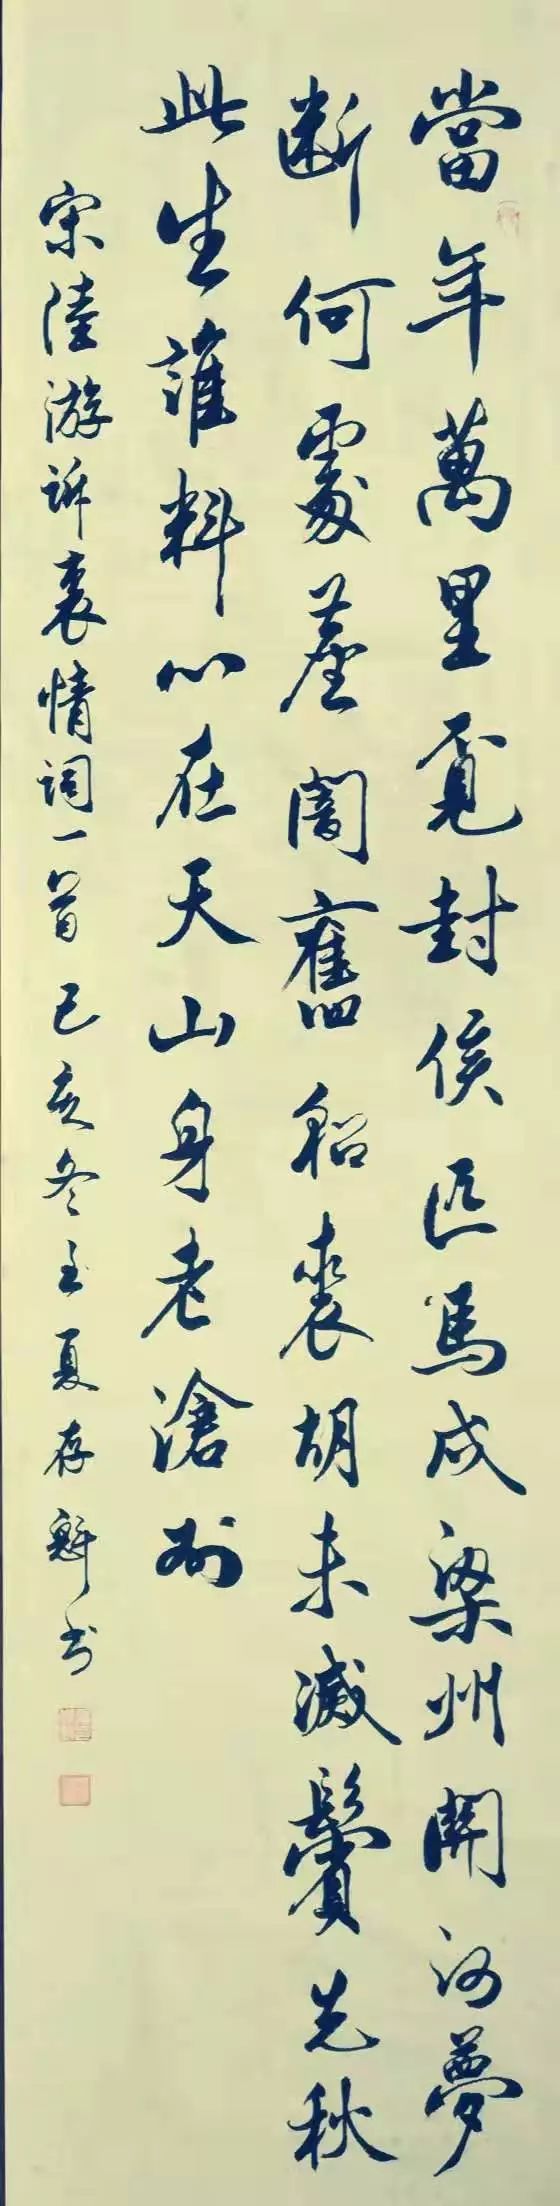 當年萬里覓封侯匹馬戍梁州關河夢
断何處塵闇舊貂裘胡未滅鬢先秋
此生誰料心在天山身老滄州
宋陸游訴衷情詞一首己亥冬至夏存魁书